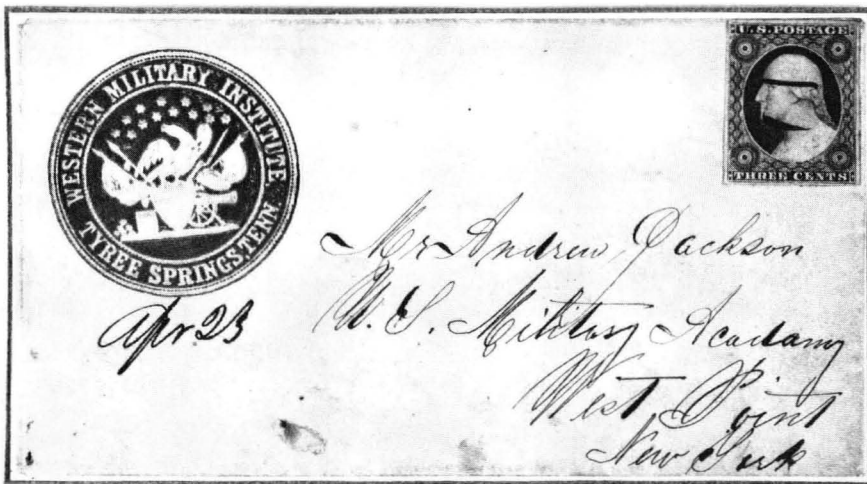 WESTERN MILITARY INSTITUTE
TYREE SPRINGS TENN.
U.S. POSTAGE
THREE CENTS
Apr 23
Mr Andrew Jackson
U. S. Military Academy
West Point
New York